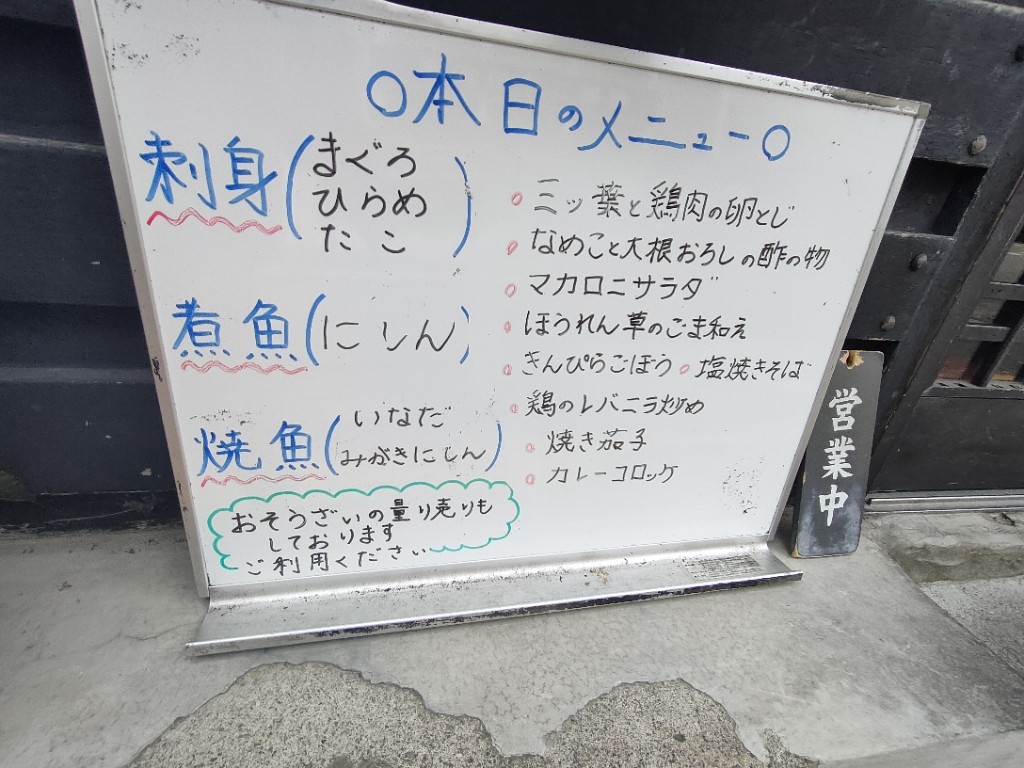 ○本日のメニュー○
刺身(まぐろ
ひらめ
たこ)
煮魚(にしん)
焼魚(いなだ
みがきにしん)
おそうざいの量り売りも
しております
ご利用ください
○三ッ葉と鶏肉の卵とじ
○なめこと大根おろしの酢の物
○マカロニサラダ
○ほうれん草のごま和え
○きんぴらごぼう ○塩焼きそば
○鶏のレバニラ炒め
○焼き茄子
○カレーコロッケ
営業中